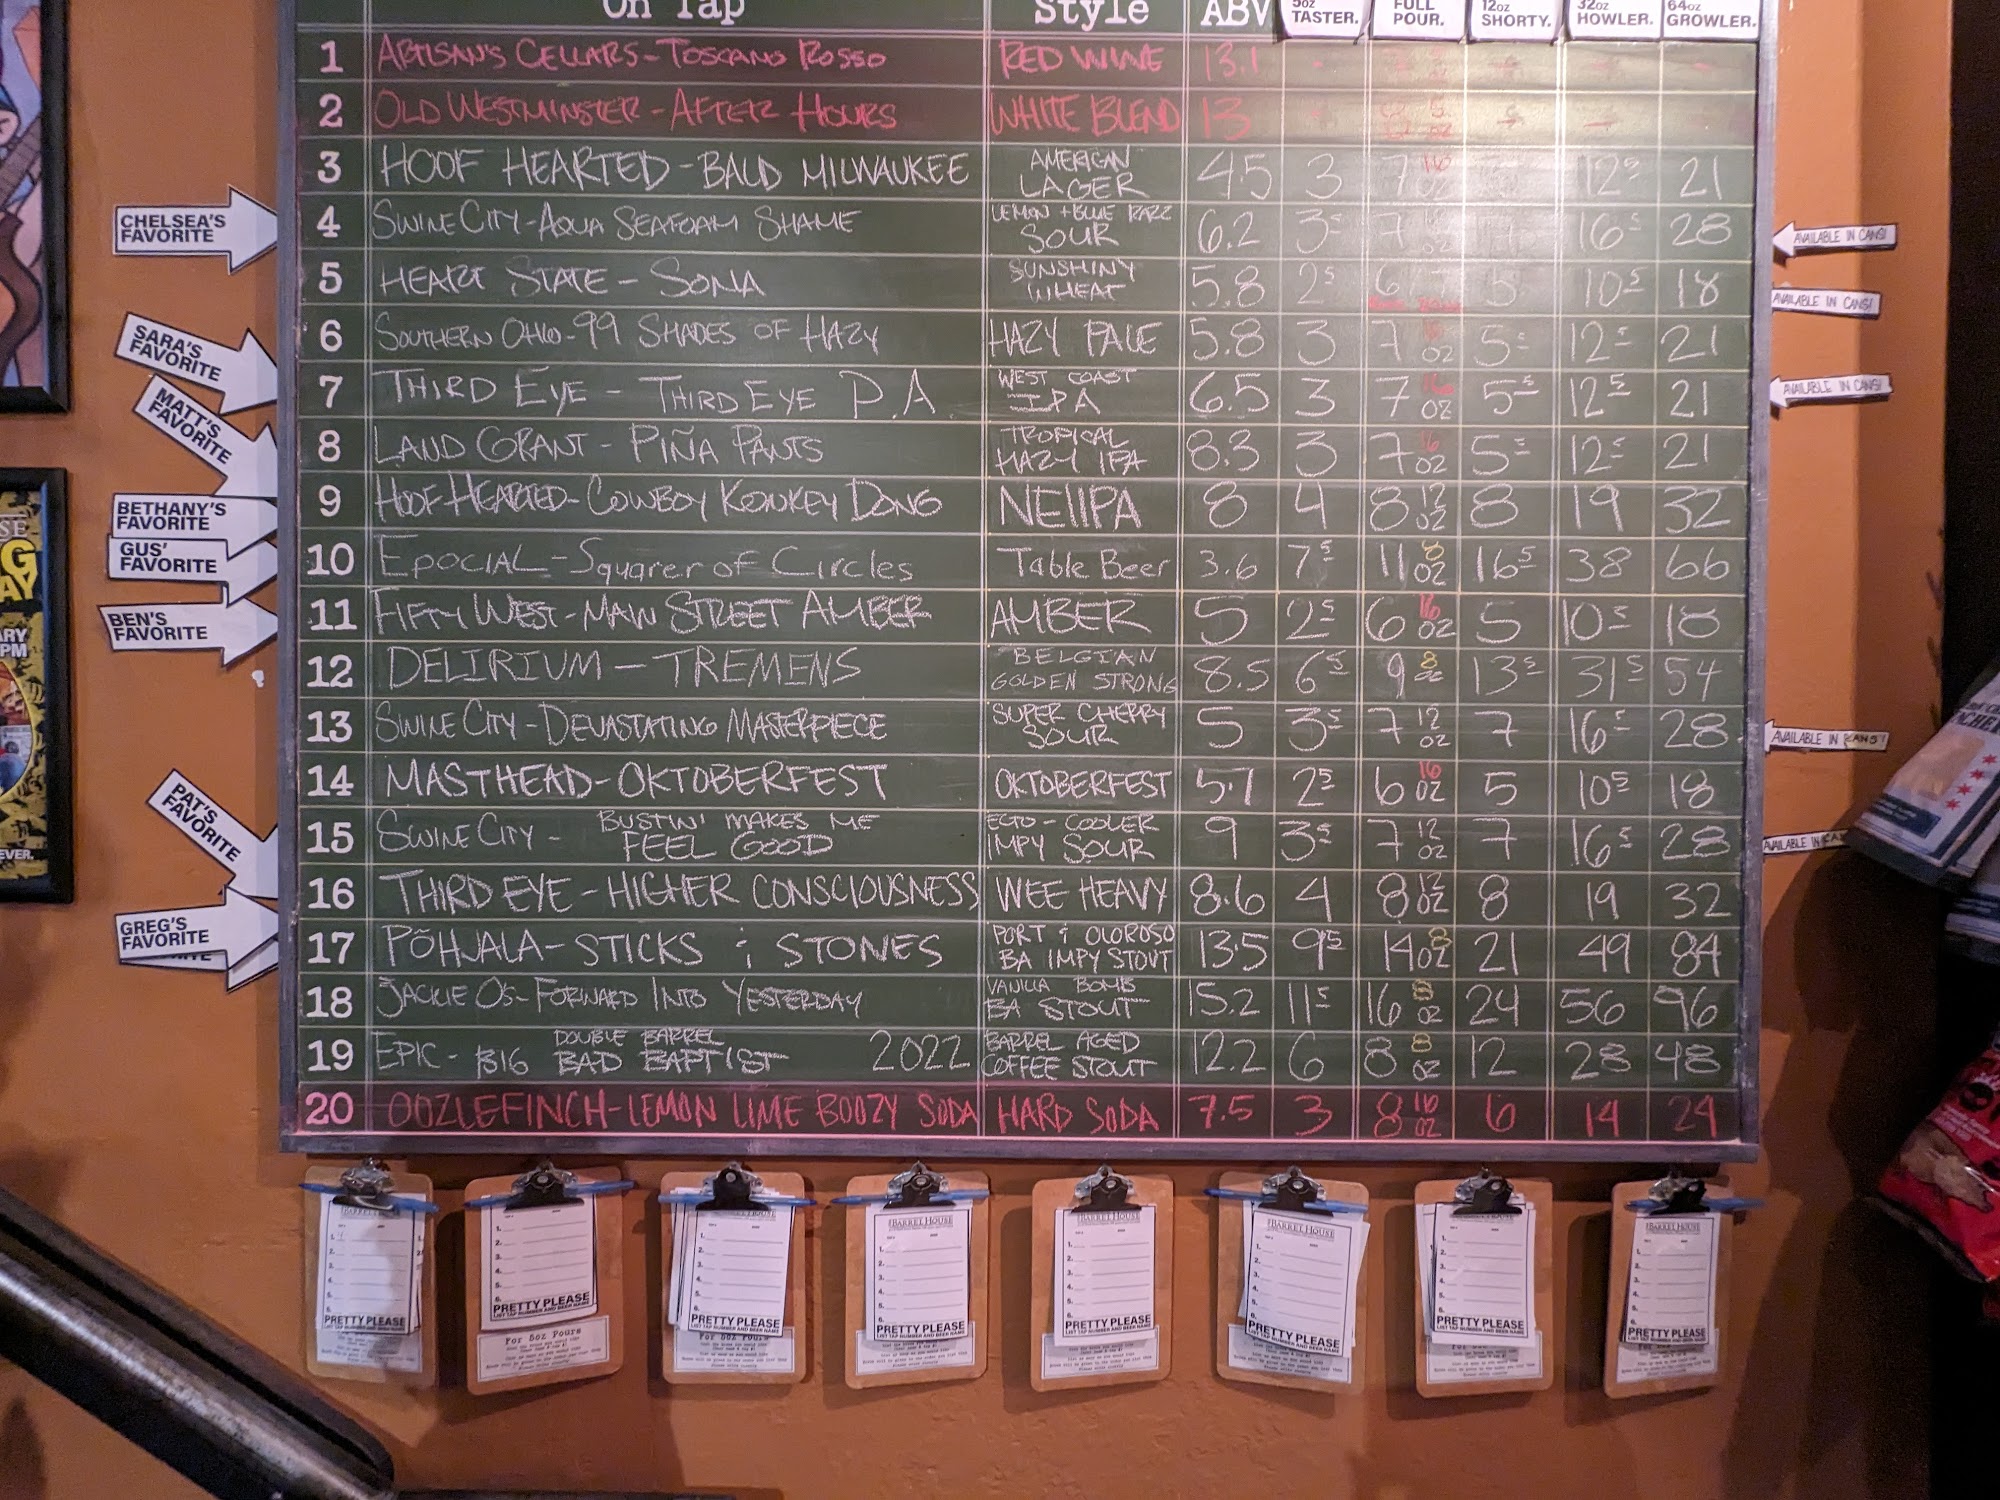 On Tap Style ABV 5oz TASTER. FULL POUR. 12oz SHORTY. 32oz HOWLER. 64oz GROWLER.
1 ARTISAN'S CELLARS - TOSCANO ROSSO RED WINE 13.1 -
2 OLD WESTMINSTER - AFTER HOURS WHITE BLEND 13 -
3 HOOF HEARTED - BALD MILWAUKEE AMERICAN LAGER 4.5 3 7 16 OZ 12⁵ 21
4 SWINE CITY - AQUA SEAFOAM SHAME LEMON + BLUE RAZZ SOUR 6.2 3⁵ 7 12 OZ 7 16⁵ 28
5 HEART STATE - SONA SUNSHINY WHEAT 5.8 2⁵ 6 5 10⁵ 18
6 SOUTHERN OHIO - 99 SHADES OF HAZY HAZY PALE 5.8 3 7 OZ 5⁵ 12⁵ 21
7 THIRD EYE - THIRD EYE P.A. WEST COAST IPA 6.5 3 7 16 OZ 5⁵ 12⁵ 21
8 LAND GRANT - PIÑA PANTS TROPICAL HAZY IPA 8.3 3 7 16 OZ 5⁵ 12⁵ 21
9 HOOF HEARTED - COWBOY KONKEY DONG NEIIPA 8 4 8 12 OZ 8 19 32
10 EPOCIAL - Squarer of Circles Table Beer 3.6 7⁵ 11 8 OZ 16⁵ 38 66
11 FIFTY WEST - MAIN STREET AMBER AMBER 5 2⁵ 6 16 OZ 5 10⁵ 18
12 DELIRIUM - TREMENS BELGIAN GOLDEN STRONG 8.5 6⁵ 9 8 OZ 13⁵ 31⁵ 54
13 SWINE CITY - DEVASTATING MASTERPIECE SUPER CHERRY SOUR 5 3⁵ 7 12 OZ 7 16⁵ 28
14 MASTHEAD - OKTOBERFEST OKTOBERFEST 5.7 2⁵ 6 16 OZ 5 10⁵ 18
15 SWINE CITY - BUSTIN' MAKES ME FEEL GOOD ECTO-COOLER IMPY SOUR 9 3⁵ 7 12 OZ 7 16⁵ 28
16 THIRD EYE - HIGHER CONSCIOUSNESS WEE HEAVY 8.6 4 8 12 OZ 8 19 32
17 PÕHJALA - STICKS & STONES PORT & OLOROSO BA IMPY STOUT 13.5 9⁵ 14 8 OZ 21 49 84
18 JACKIE O'S - FORWARD INTO YESTERDAY VANILLA BOMB BA STOUT 15.2 11⁵ 16 8 OZ 24 56 96
19 EPIC - DOUBLE BARREL BIG BAD BAPTIST 2022 BARREL AGED COFFEE STOUT 12.2 6 8 8 OZ 12 28 48
20 OOZLEFINCH - LEMON LIME BOOZY SODA HARD SODA 7.5 3 8 16 OZ 6 14 24
CHELSEA'S FAVORITE
SARA'S FAVORITE
MATT'S FAVORITE
BETHANY'S FAVORITE
GUS' FAVORITE
BEN'S FAVORITE
PAT'S FAVORITE
GREG'S FAVORITE
AVAILABLE IN CANS!
AVAILABLE IN CANS!
AVAILABLE IN CANS!
AVAILABLE IN CANS!
AVAILABLE IN
BARREL HOUSE
PRETTY PLEASE
LIST TAP NUMBER AND BEER NAME
For 8oz Pours
PRETTY PLEASE
PRETTY PLEASE
PRETTY PLEASE
PRETTY PLEASE
PRETTY PLEASE
PRETTY PLEASE
PRETTY PLEASE